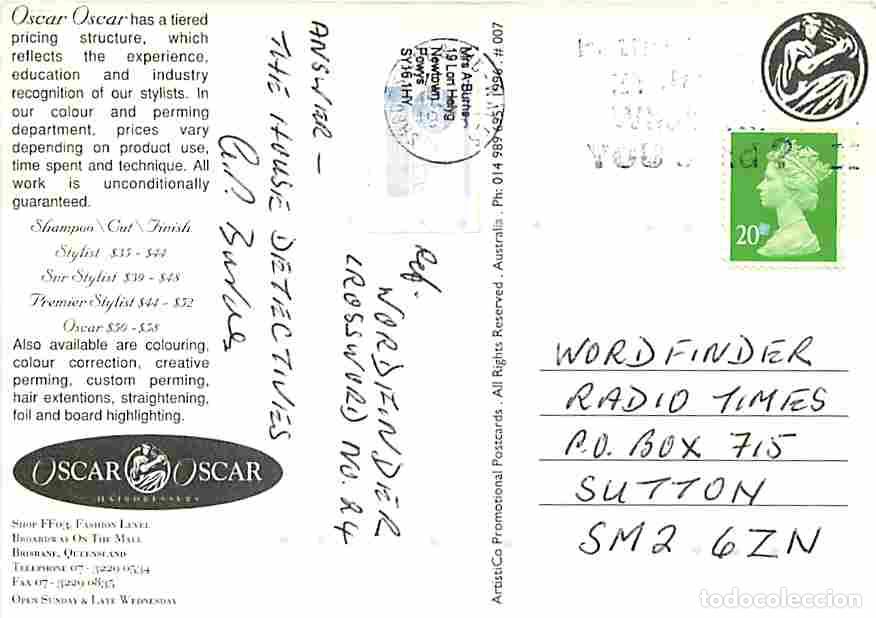 Oscar Oscar has a tiered
pricing structure, which
reflects the experience,
education and industry
recognition of our stylists. In
our colour and perming
department, prices vary
depending on product use,
time spent and technique. All
work is unconditionally
guaranteed.
Shampoo\Cut\Finish
Stylist $35 - $44
Snr Stylist $39 - $48
Premier Stylist $44 - $52
Oscar $50 - $58
Also available are colouring,
colour correction, creative
perming, custom perming,
hair extentions, straightening,
foil and board highlighting.
OSCAR OSCAR
HAIRDRESSERS
SHOP FF03, FASHION LEVEL
BROADWAY ON THE MALL
BRISBANE, QUEENSLAND
TELEPHONE 07 - 3229 0534
FAX 07 - 3229 0835
OPEN SUNDAY & LATE WEDNESDAY
ANSWER -
THE HOUSE DETECTIVES
Ref.
WORDFINDER
CROSSWORD NO. 24
Mrs A Burhem
19 Lon Helyg
Newtown
Powys
SY16 1HY
ArtistiCo Promotional Postcards . All Rights Reserved . Australia . Ph: 014 989 695 1996 # 007
YOU
20
WORDFINDER
RADIO TIMES
P.O. BOX 715
SUTTON
SM2 6ZN
todocoleccion